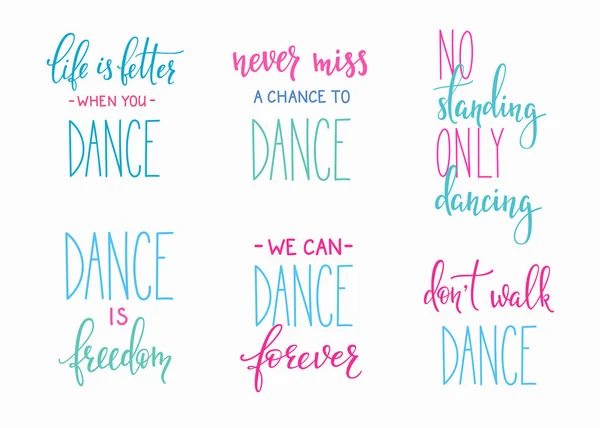 life is better
- WHEN YOU -
DANCE
never miss
A CHANCE TO
DANCE
NO
standing
ONLY
dancing
DANCE
IS
freedom
- WE CAN -
DANCE
forever
don't walk
DANCE